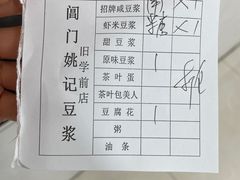 阊门姚记豆浆
旧学前店
招牌咸豆浆
虾米豆浆 X1
甜豆浆
原味豆浆 1
茶叶蛋
茶叶包美人
豆腐花 1
粥
油条